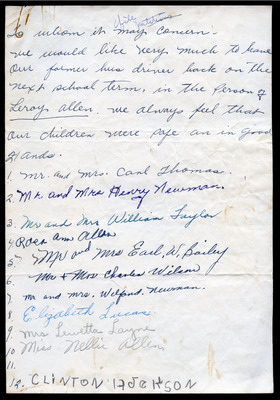 To whom it may concern.
we would like very much to have
our former bus driver back on the
next school term, in the person of
Leroy Allen. we always feel that
our children were safe an in good
Hands.
1. Mr. and Mrs. Carl Thomas.
2. Mr. and Mrs Henry Newman.
3. Mr and Mrs William Taylor
4 Rosa Ann Allen
5 Mr and Mrs Earl W. Bailey
6. Mr & Mrs Charles Wilson
7 mr and mrs. Wilford Newman.
8 Elizabeth Lucas
9. Mrs Layne
10 Miss Nellie Allen
11.
12. CLINTON